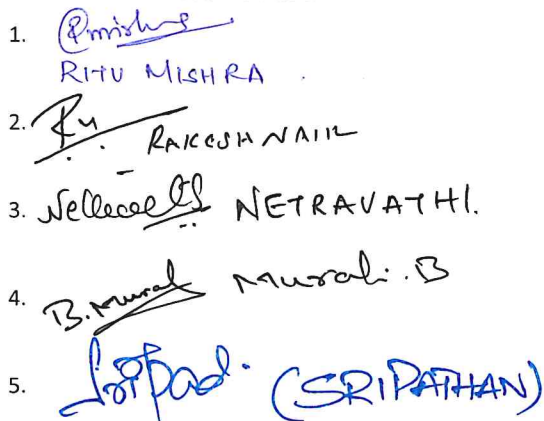 1. Rmishra
RITU MISHRA
2. RAKESH NAIK
3. NETRAVATHI.
4. B.Mural Murali.B
5. Sripad. (SRIPATHAN)